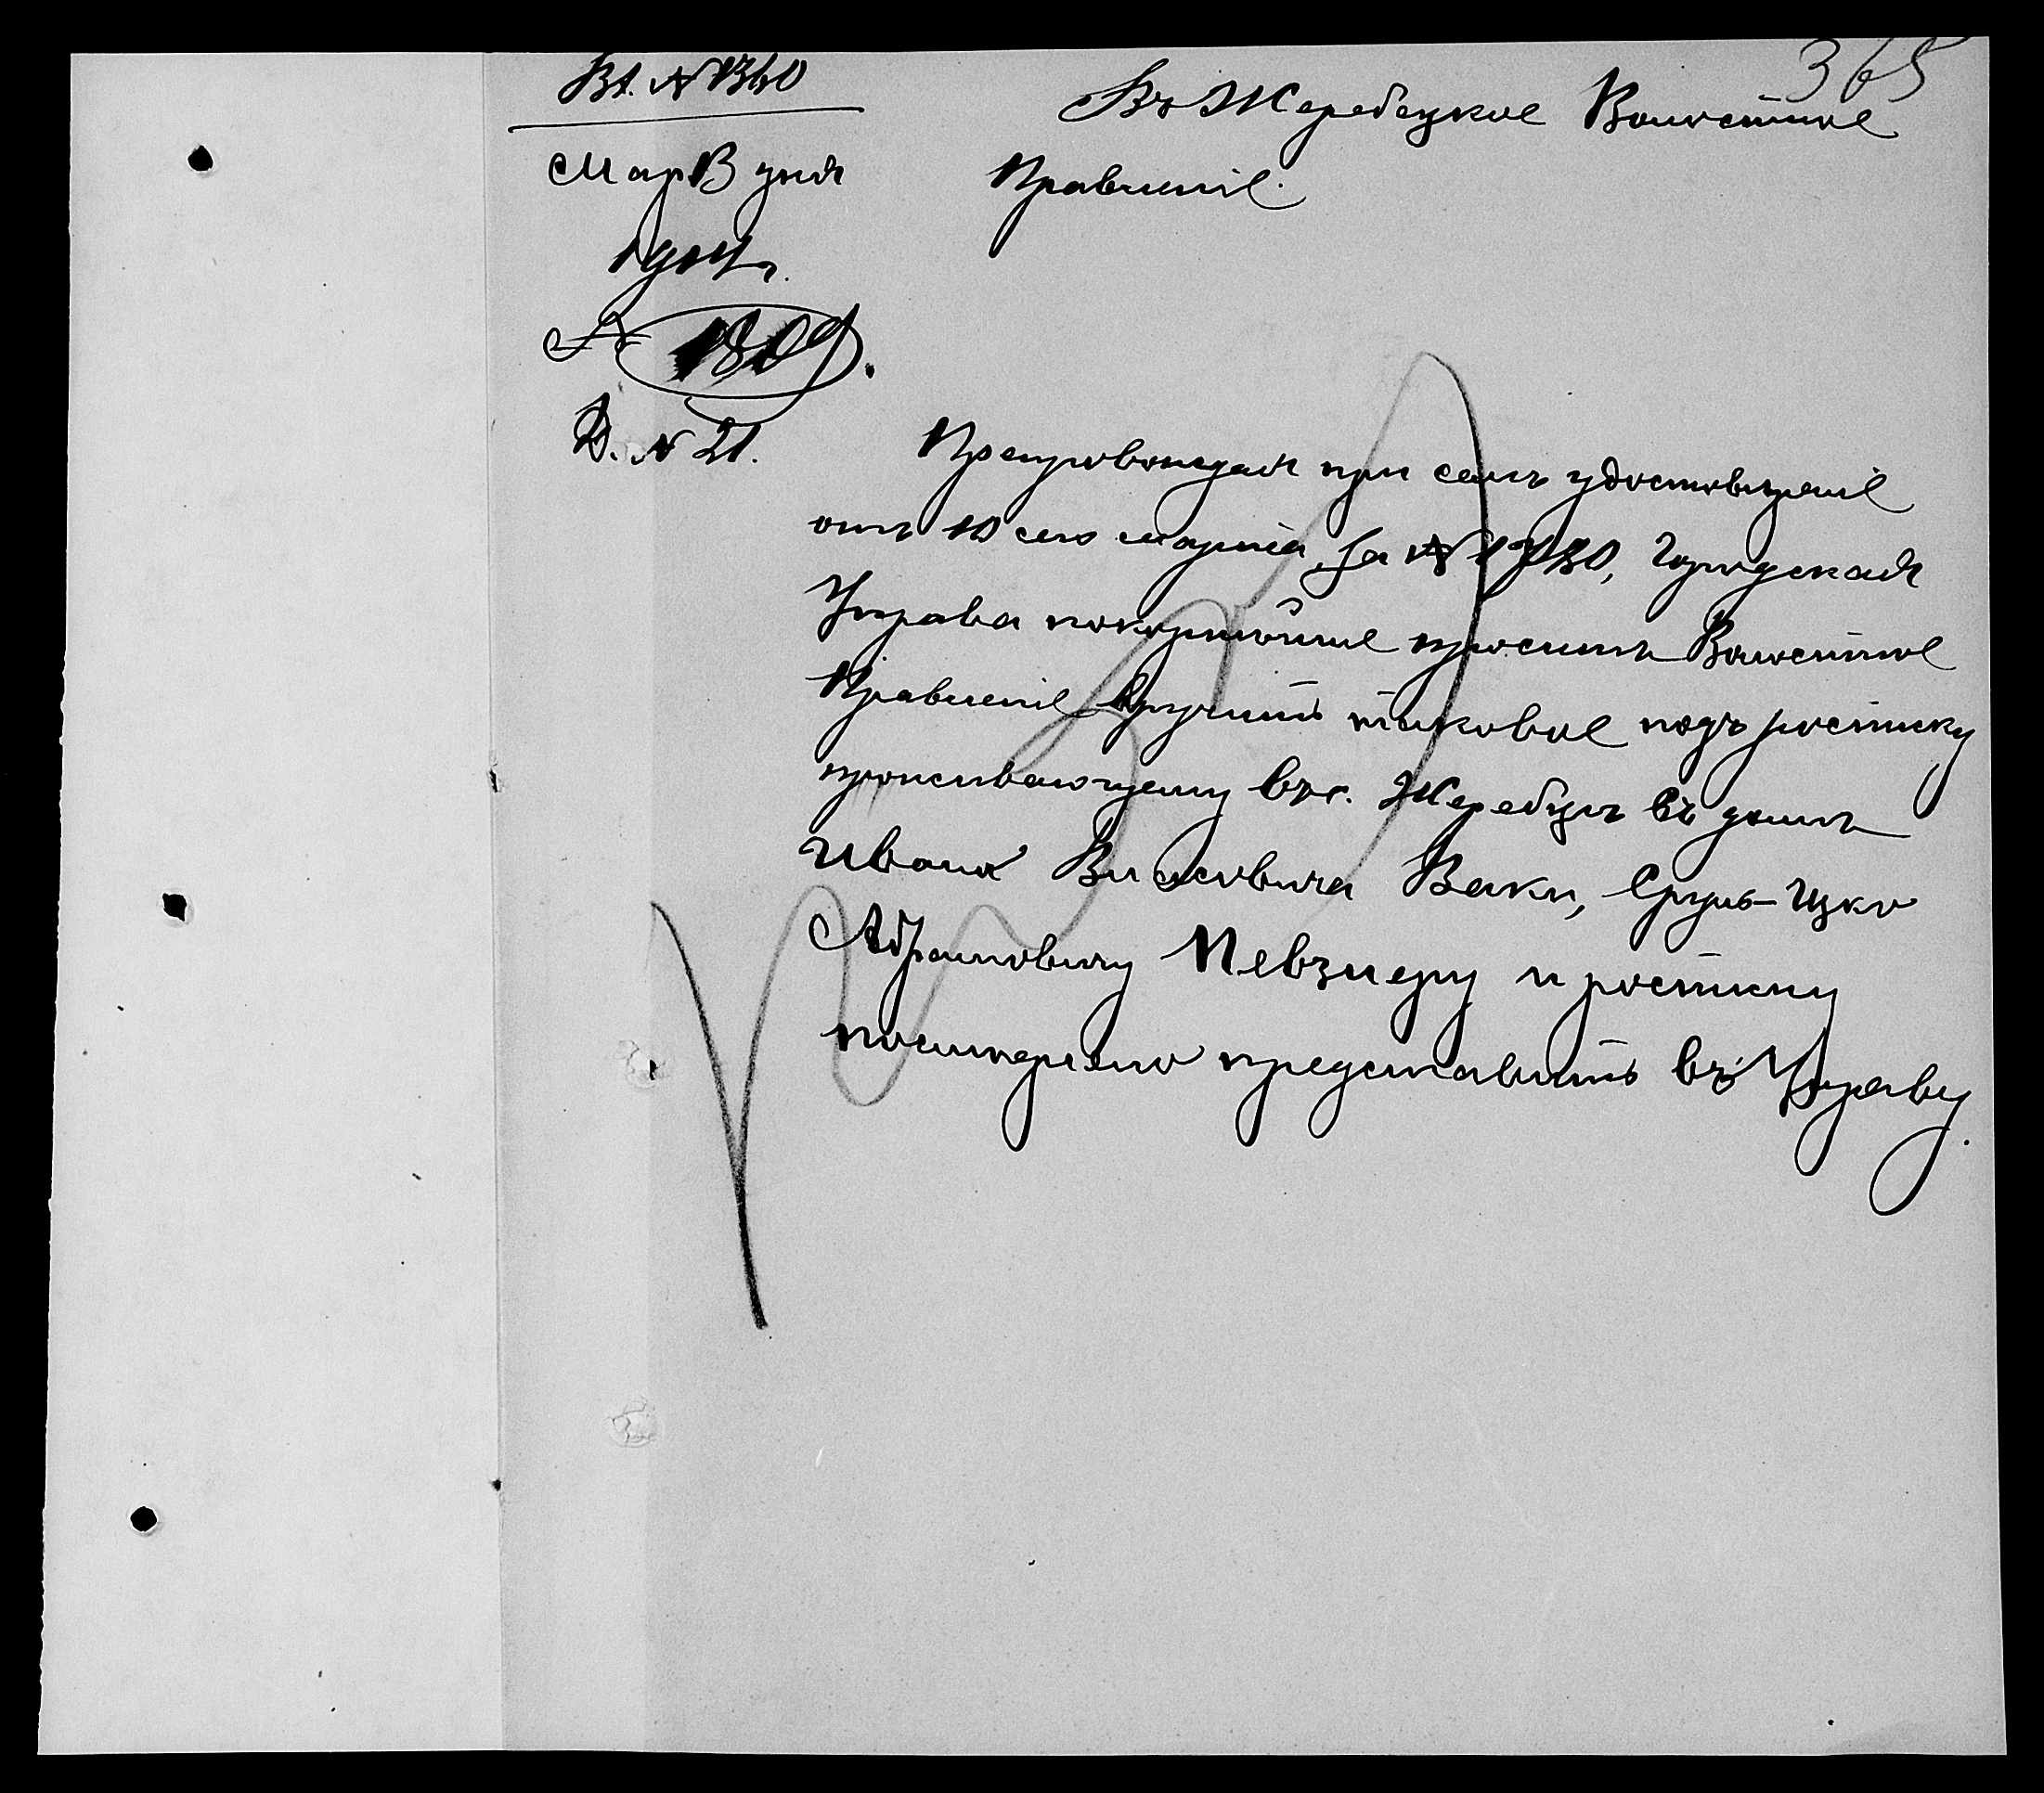 365
Вх. № 1360
Въ Жеребецкое Волостное
Правленіе.
Мар 13 дня
1904 г.
№ 1809.
Д. № 21.
Препровождая при семъ удостовѣреніе
отъ 10 сего марта за № 1730, Городская
Управа покорнѣйше проситъ Волостное
Правленіе вручить таковое подъ росписку
проживающему въ с. Жеребцѣ въ домѣ
Ивана Вака, Сруль-Ицко
Абрамовичу Певзнеру и росписку
представить въ Управу.